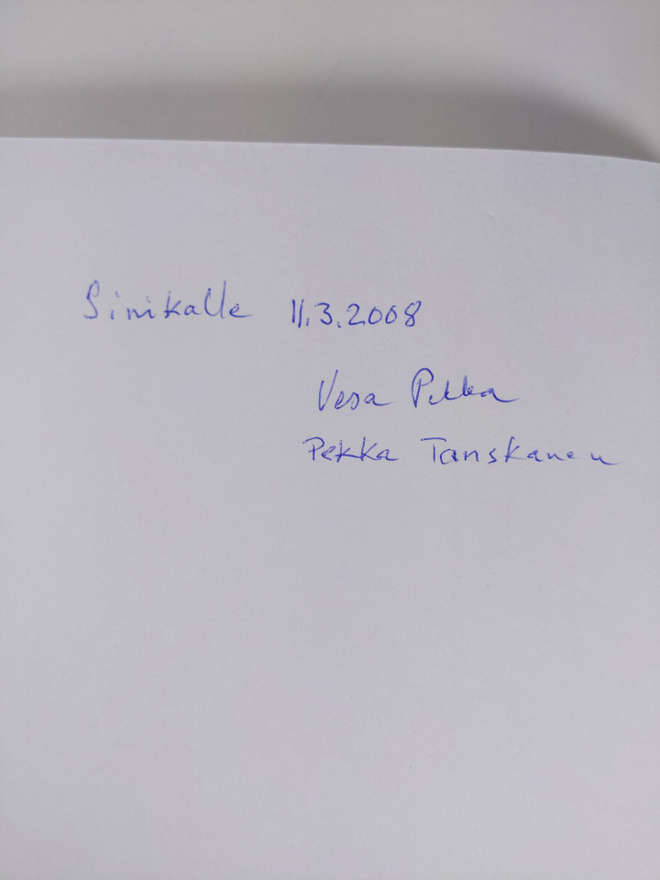 Sinikalle 11.3.2008
Vesa Pekka
Pekka Tanskanen